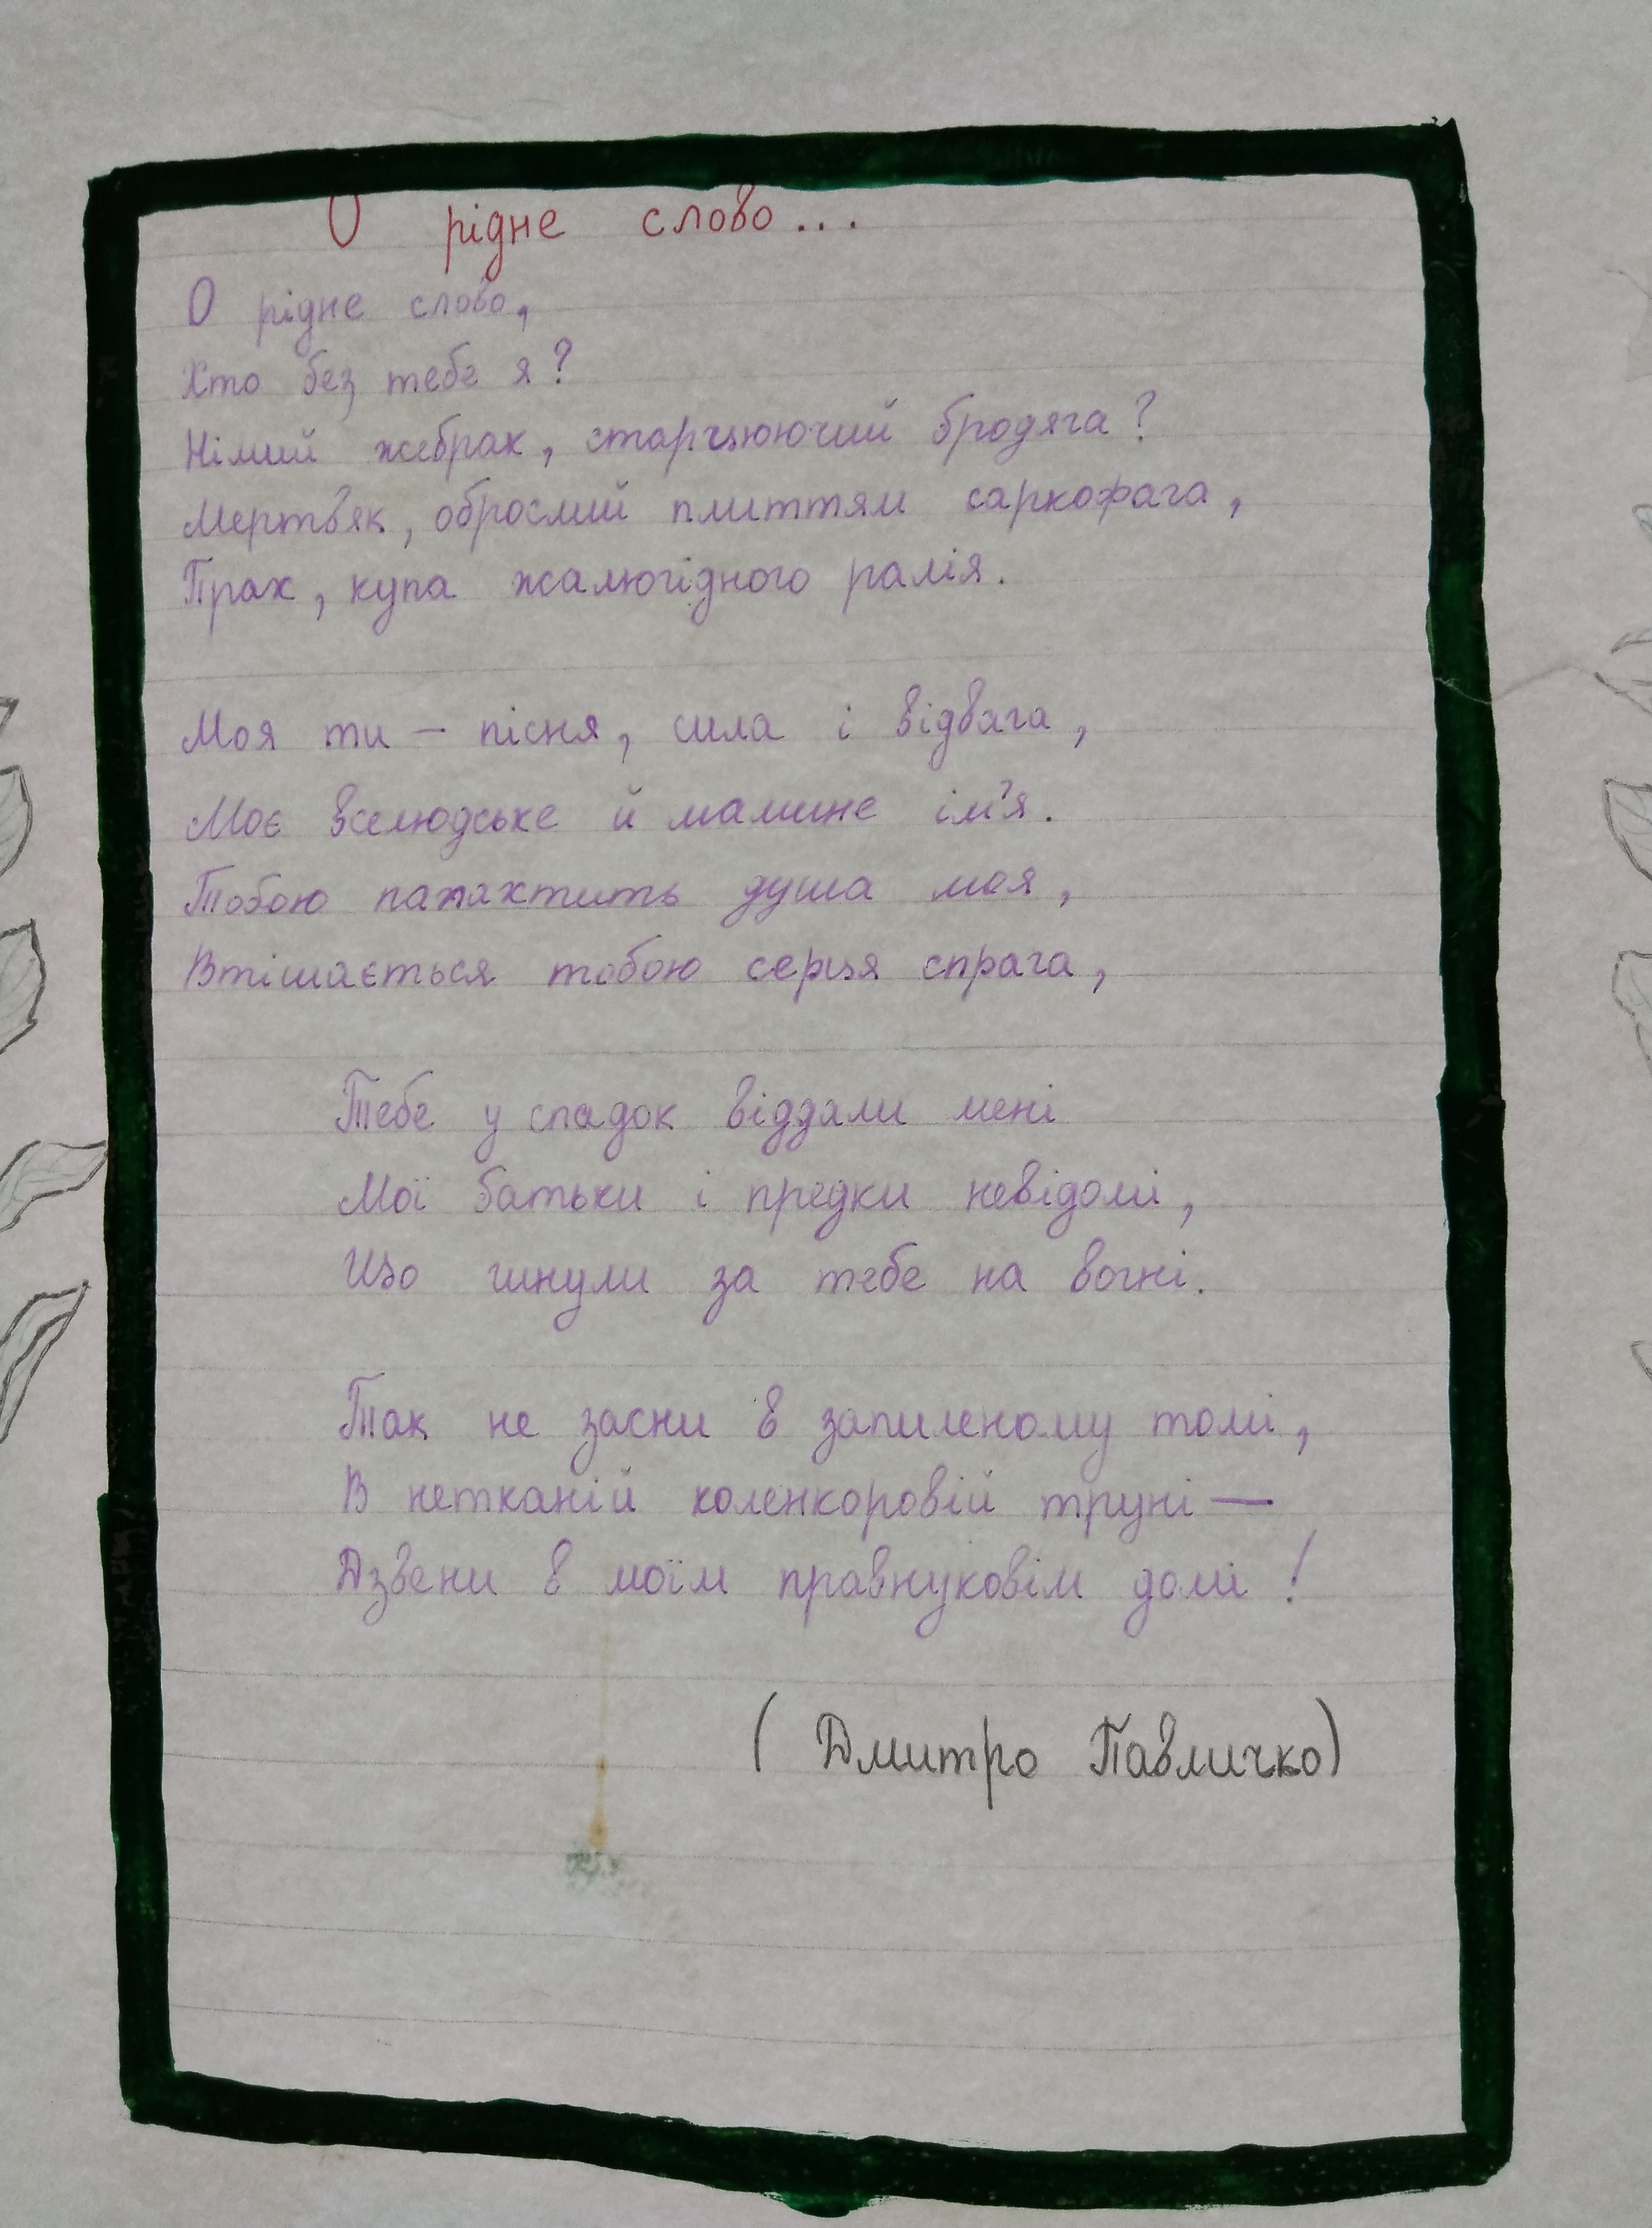 О рідне слово...
О рідне слово,
Хто без тебе я?
Німий жебрак, старцюючий бродяга?
Мертв'як, оброслий плиттям саркофага,
Прах, купа жалюгідного ралія.
Моя ти – пісня, сила і відвага,
Моє вселюдське й мамине ім'я.
Тобою палахтить душа моя,
Втішається тобою серця спрага,
Тебе у спадок віддали мені
Мої батьки і предки невідомі,
Що гинули за тебе на вогні.
Так не засни в запиленому томі,
В нетканій коленкоровій труні —
Дзвени в моїм правнуковім домі!
(Дмитро Павличко)